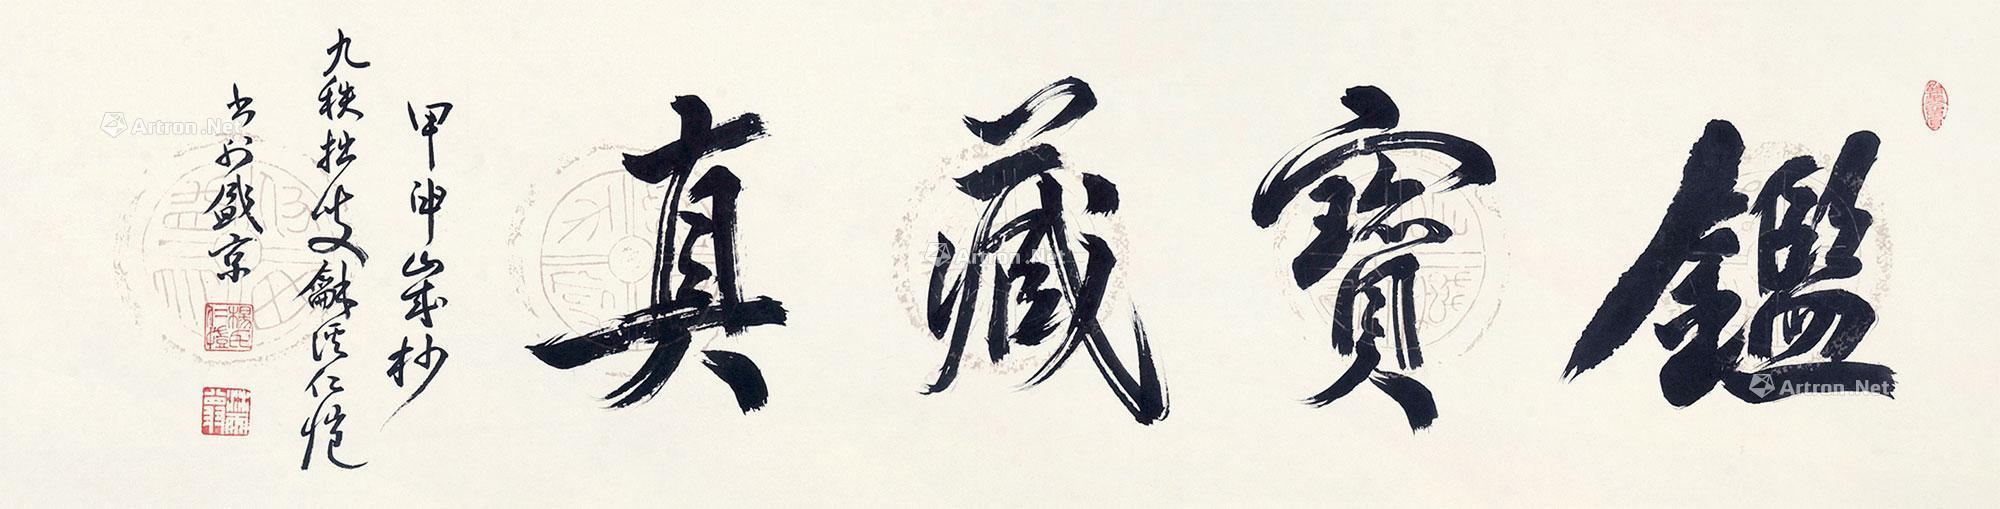 鑑寶藏真
甲申歲杪
九秩拙叟龢溪仁愷
书於盛京
楊氏仁愷
Artron.Net
Artron.Net
Artron.Net